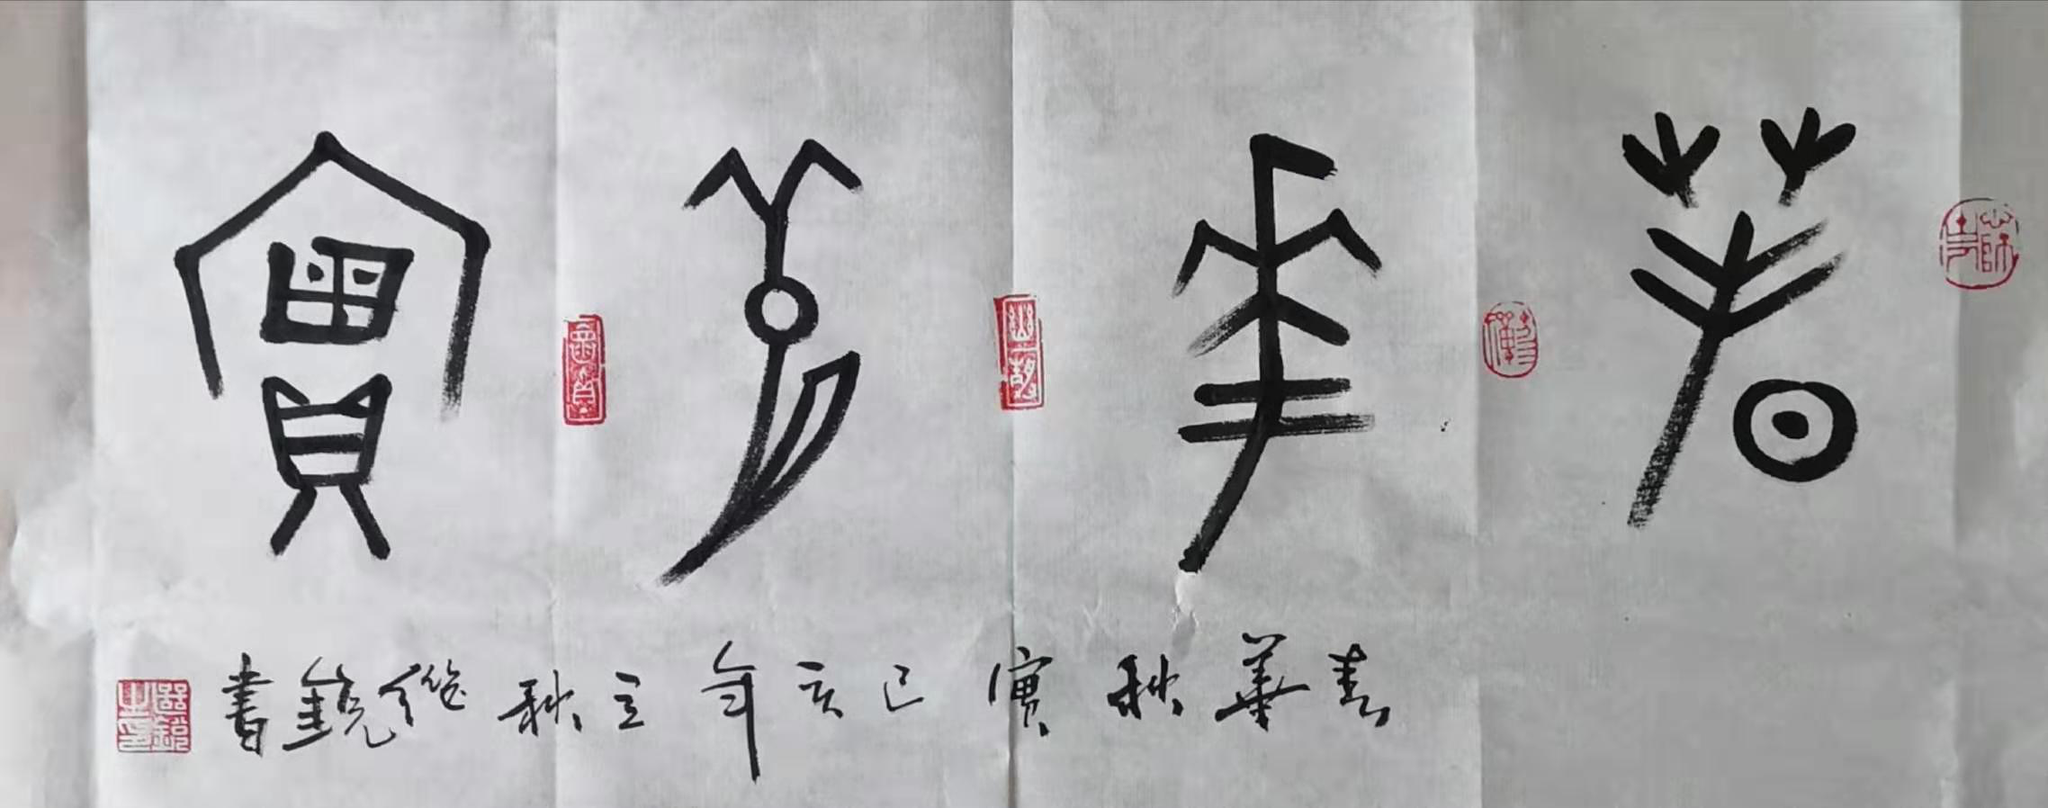 春華秋實
春華秋實 己亥年立秋 繼鐃書